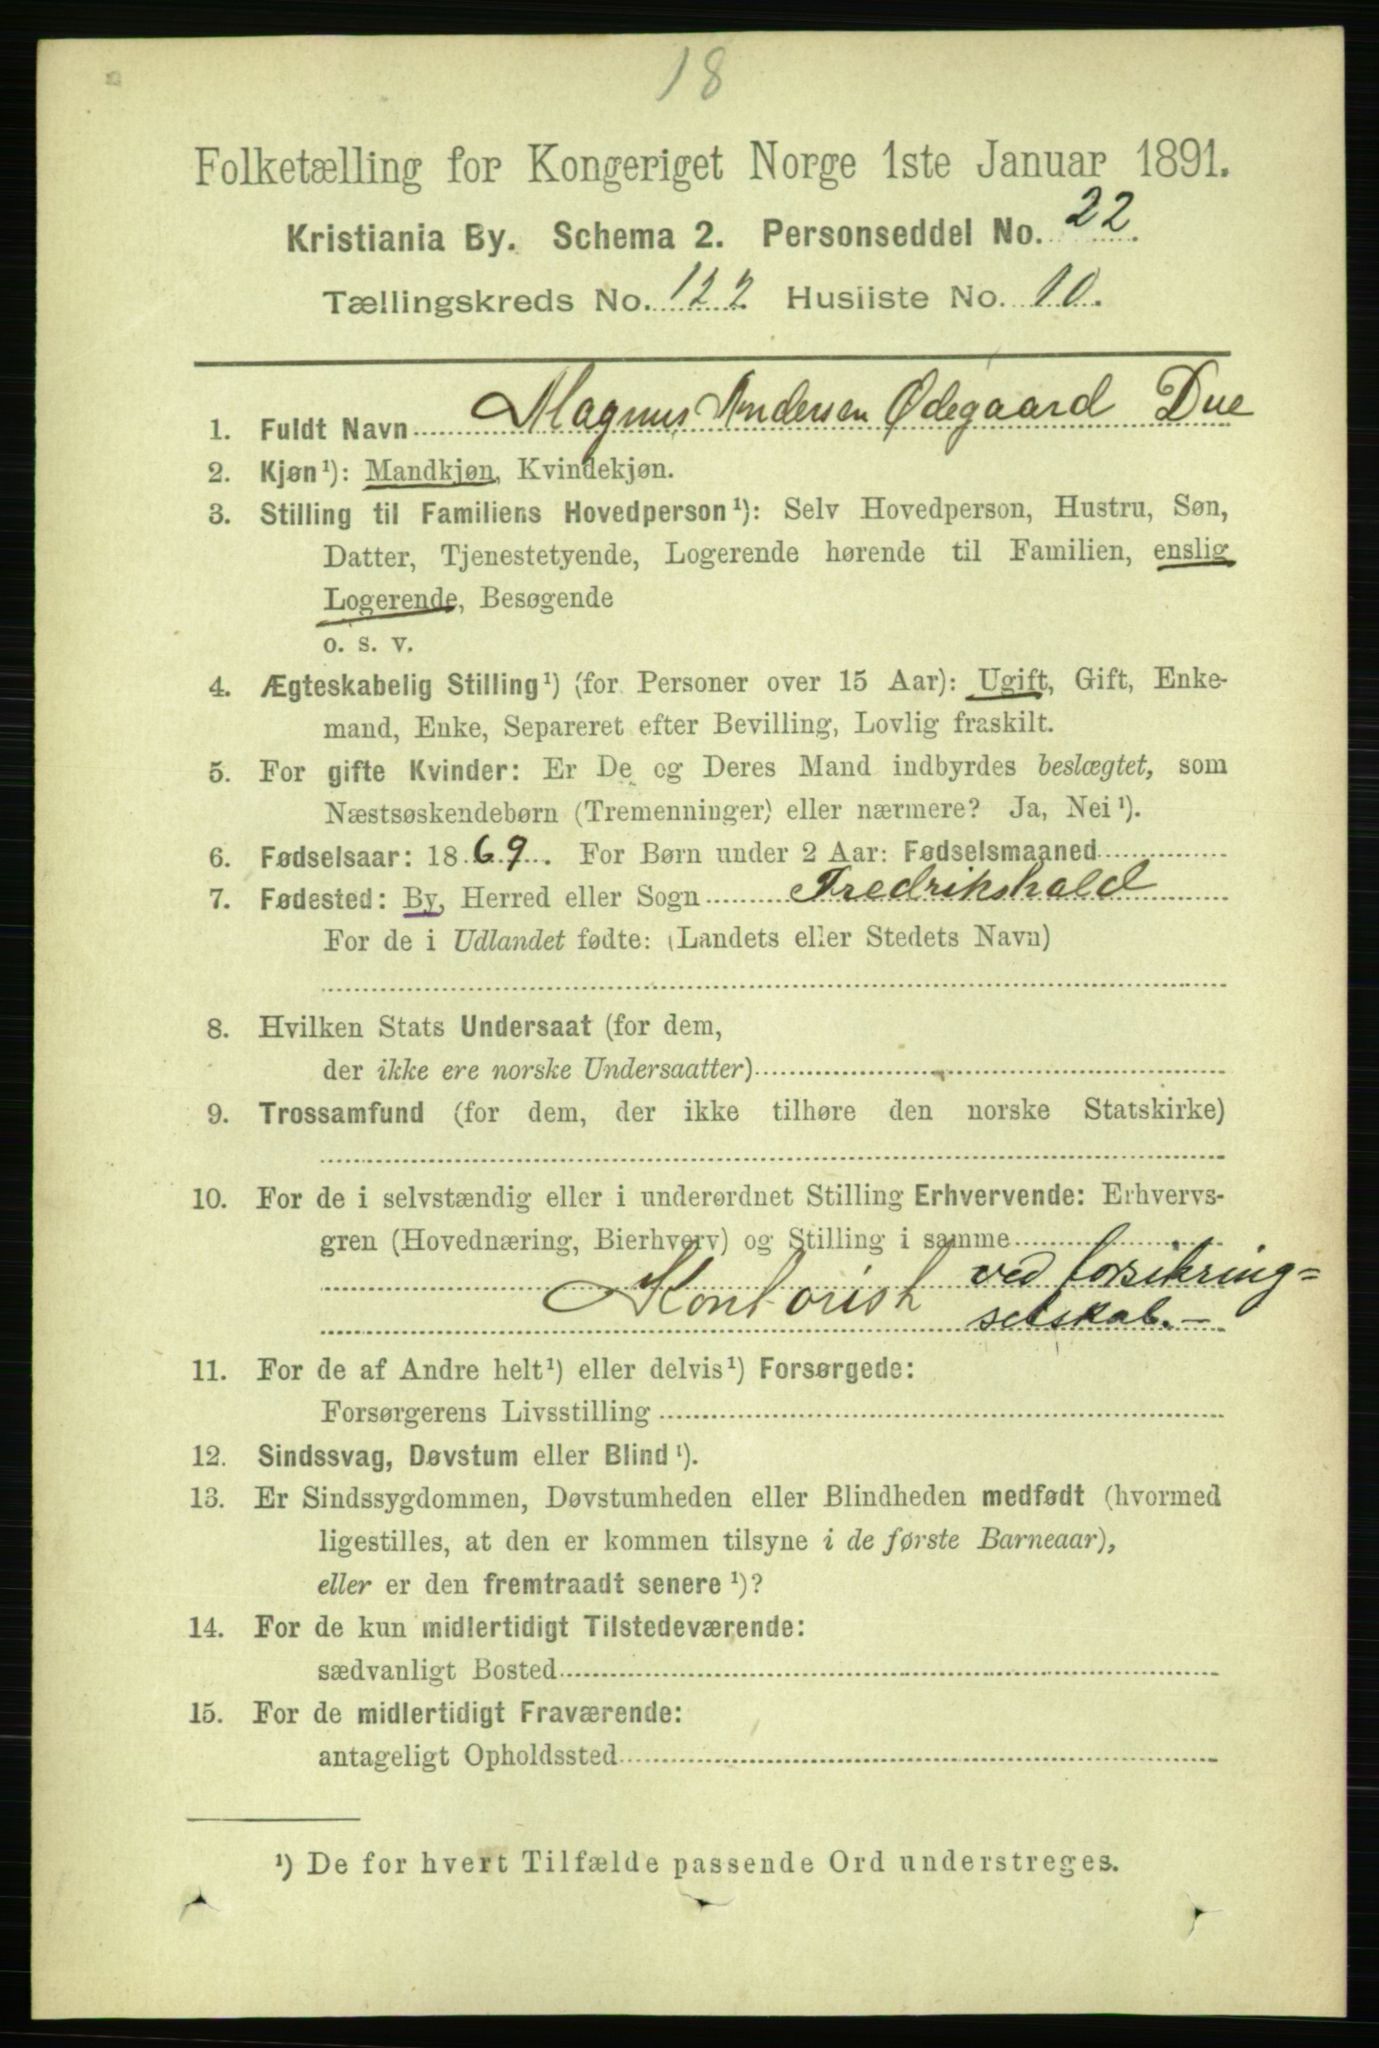 18
Folketælling for Kongeriget Norge 1ste Januar 1891.
Kristiania By. Schema 2. Personseddel No. 22.
Tællingskreds No. 122 Husliste No. 10.
1. Fuldt Navn Magnus Andersen Ødegaard Due
2. Kjøn¹): Mandkjøn, Kvindekjøn.
3. Stilling til Familiens Hovedperson¹): Selv Hovedperson, Hustru, Søn,
Datter, Tjenestetyende, Logerende hørende til Familien, enslig
Logerende, Besøgende
o. s. v.
4. Ægteskabelig Stilling¹) (for Personer over 15 Aar): Ugift, Gift, Enke-
mand, Enke, Separeret efter Bevilling, Lovlig fraskilt.
5. For gifte Kvinder: Er De og Deres Mand indbyrdes beslægtet, som
Næstsøskendebørn (Tremenninger) eller nærmere? Ja, Nei¹).
6. Fødselsaar: 1869. For Børn under 2 Aar: Fødselsmaaned
7. Fødested: By, Herred eller Sogn Fredrikshald
For de i Udlandet fødte: (Landets eller Stedets Navn)
8. Hvilken Stats Undersaat (for dem,
der ikke ere norske Undersaatter)
9. Trossamfund (for dem, der ikke tilhøre den norske Statskirke)
10. For de i selvstændig eller i underordnet Stilling Erhvervende: Erhvervs-
gren (Hovednæring, Bierhverv) og Stilling i samme
Kontorist ved forsikring=
selskab.-
11. For de af Andre helt¹) eller delvis¹) Forsørgede:
Forsørgerens Livsstilling
12. Sindssvag, Døvstum eller Blind¹).
13. Er Sindssygdommen, Døvstumheden eller Blindheden medfødt (hvormed
ligestilles, at den er kommen tilsyne i de første Barneaar),
eller er den fremtraadt senere¹)?
14. For de kun midlertidigt Tilstedeværende:
sædvanligt Bosted
15. For de midlertidigt Fraværende:
antageligt Opholdssted
¹) De for hvert Tilfælde passende Ord understreges.